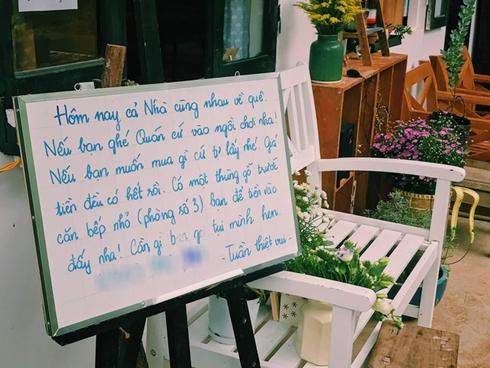 Hôm nay cả Nhà cùng nhau về quê.
Nếu bạn ghé Quán cứ vào ngồi chơi nha!
Nếu bạn muốn mua gì cứ tự lấy nhé. Giá
tiền đều có hết rồi. Có một thùng gỗ trước
căn bếp nhỏ (phòng số 3) bạn để tiền vào
đấy nha! Cần gì bạn gọi tụi mình hen
- Tuần thiệt vui -